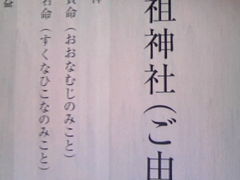 祖神社(ご由
貴命(おおなむじのみこと)
名命(すくなひこなのみこと)